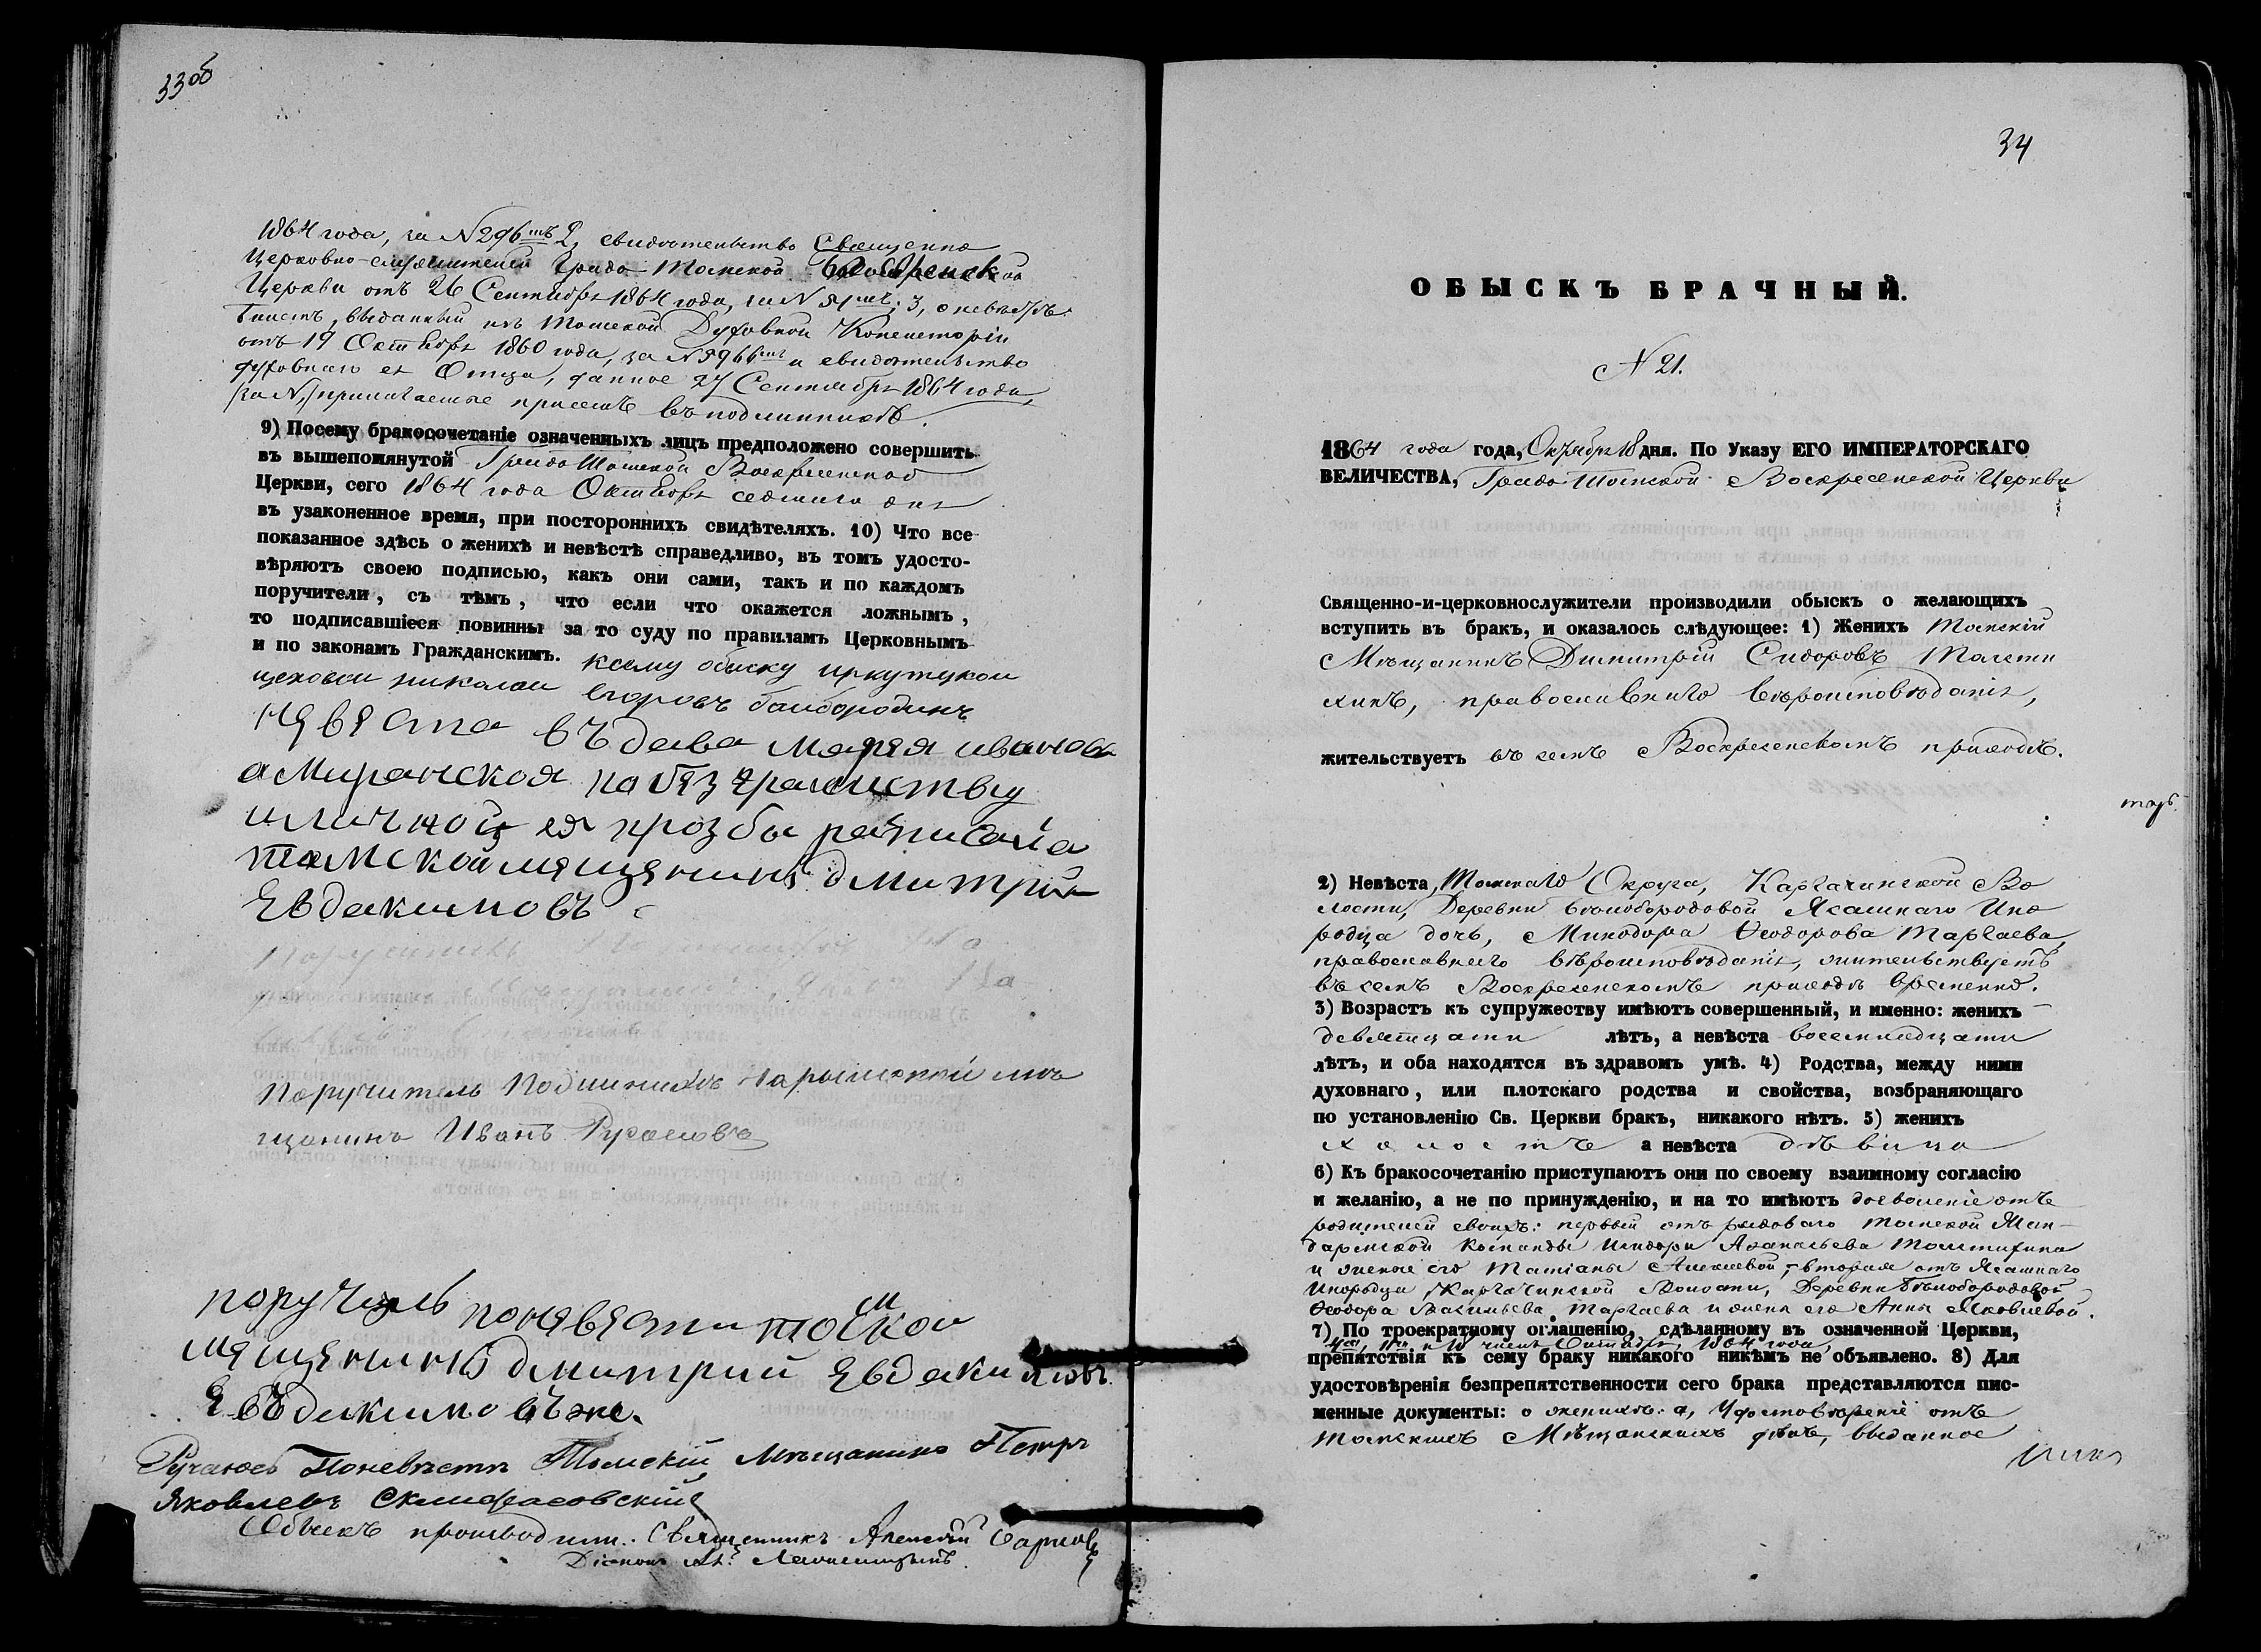 33об
1864 года, за №296мъ 2, свидѣтельство Священно
Церковно-служителей Градо-Томской Благовѣщенской
Церкви отъ 26 Сентября 1864 года, за № 51мъ; 3, о невѣстѣ:
выданный изъ Томской Духовной Консисторіи
отъ 19 Октября 1860 года, за №5966мъ и свидѣтельство
духовнаго ея Отца, данное 27 Сентября 1864 года,
за №, прилагаемые при семъ въ подлинникѣ.
9) Посему бракосочетаніе означенныхъ лицъ предположено совершить
въ вышепомянутой Градо-Томской Воскресенской
Церкви, сего 1864 года Октября седмаго дня
въ узаконенное время, при постороннихъ свидѣтеляхъ. 10) Что все
показанное здѣсь о женихѣ и невѣстѣ справедливо, въ томъ удосто-
вѣряютъ своею подписью, какъ они сами, такъ и по каждомъ
поручители, съ тѣмъ, что если что окажется ложнымъ,
то подписавшіеся повинны за то суду по правиламъ Церковнымъ
и по законамъ Гражданскимъ. ксему обыску иркутцкой
цеховой николай егоровъ байбородинъ
нявяста въдава маряя иванова
а Миранская
и личной ея прозбы
томской мящянинъ дмитрий
Явдакимовъ
Поручитель Нарымской мѣ
щанинъ Иванъ Русановъ
поручитель понявясти томской
мящянинъ дмитрий Явдакимовъ
Явъдакимовъ же.
Ручаюсь Поневѣстѣ Томскій Мѣщанинъ Петръ
Яковлевъ Склифасовскій
Обыскъ производили: Священникъ Алексѣй
Діаконъ
34
ОБЫСКЪ БРАЧНЫЙ.
№ 21.
1864 года года, Октября 18 дня. По Указу ЕГО ИМПЕРАТОРСКАГО
ВЕЛИЧЕСТВА, Градо-Томской Воскресенской Церкви
Священно-и-церковнослужители производили обыскъ о желающихъ
вступить въ бракъ, и оказалось слѣдующее: 1) Женихъ Томскій
Мѣщанинъ Димитрій Сидоровъ Толсти
хинъ, православнаго вѣроисповѣданія,
жительствуетъ въ семъ Воскресенскомъ приходѣ.
2) Невѣста, Томскаго Округа, Каргачинской Во
лости, Деревни Бѣлобородовой Ясашнаго Ино
родца дочь, Минодора Ѳеодорова Таргаева,
православнаго вѣроисповѣданія, жительствуетъ
въ семъ Воскресенскомъ приходѣ временно.
3) Возрастъ къ супружеству имѣютъ совершенный, и именно: женихъ
девятнцати лѣтъ, а невѣста восемнадцати
лѣтъ, и оба находятся въ здравомъ умѣ. 4) Родства, между ними
духовнаго, или плотскаго родства и свойства, возбраняющаго
по установленію Св. Церкви бракъ, никакого нѣтъ. 5) женихъ
холостъ а невѣста дѣвица
6) Къ бракосочетанію приступаютъ они по своему взаимному согласію
и желанію, а не по принужденію, и на то имѣютъ дозволеніе отъ
родителей своихъ: первый отъ рядоваго Томской Жан-
дармской Команды Исидора Аѳанасьева Толстихина
и жены его Татіаны Алексѣевой, вторая отъ Ясашнаго
Инородца Каргачинской Волости, Деревни Бѣлобородовой
Ѳеодора Васильева Таргаева и жены его Анны Яковлевой.
7) По троекратному оглашенію, сдѣланному въ означенной Церкви,
4го, 11го и 18 чиселъ Октября, 1864 года,
препятствія къ сему браку никакого никѣмъ не объявлено. 8) Для
удостовѣренія безпрепятственности сего брака представляются пис-
менные документы: о женихѣ: а, Удостовѣреніе отъ
Томскихъ Мѣщанскихъ дѣлъ, выданное